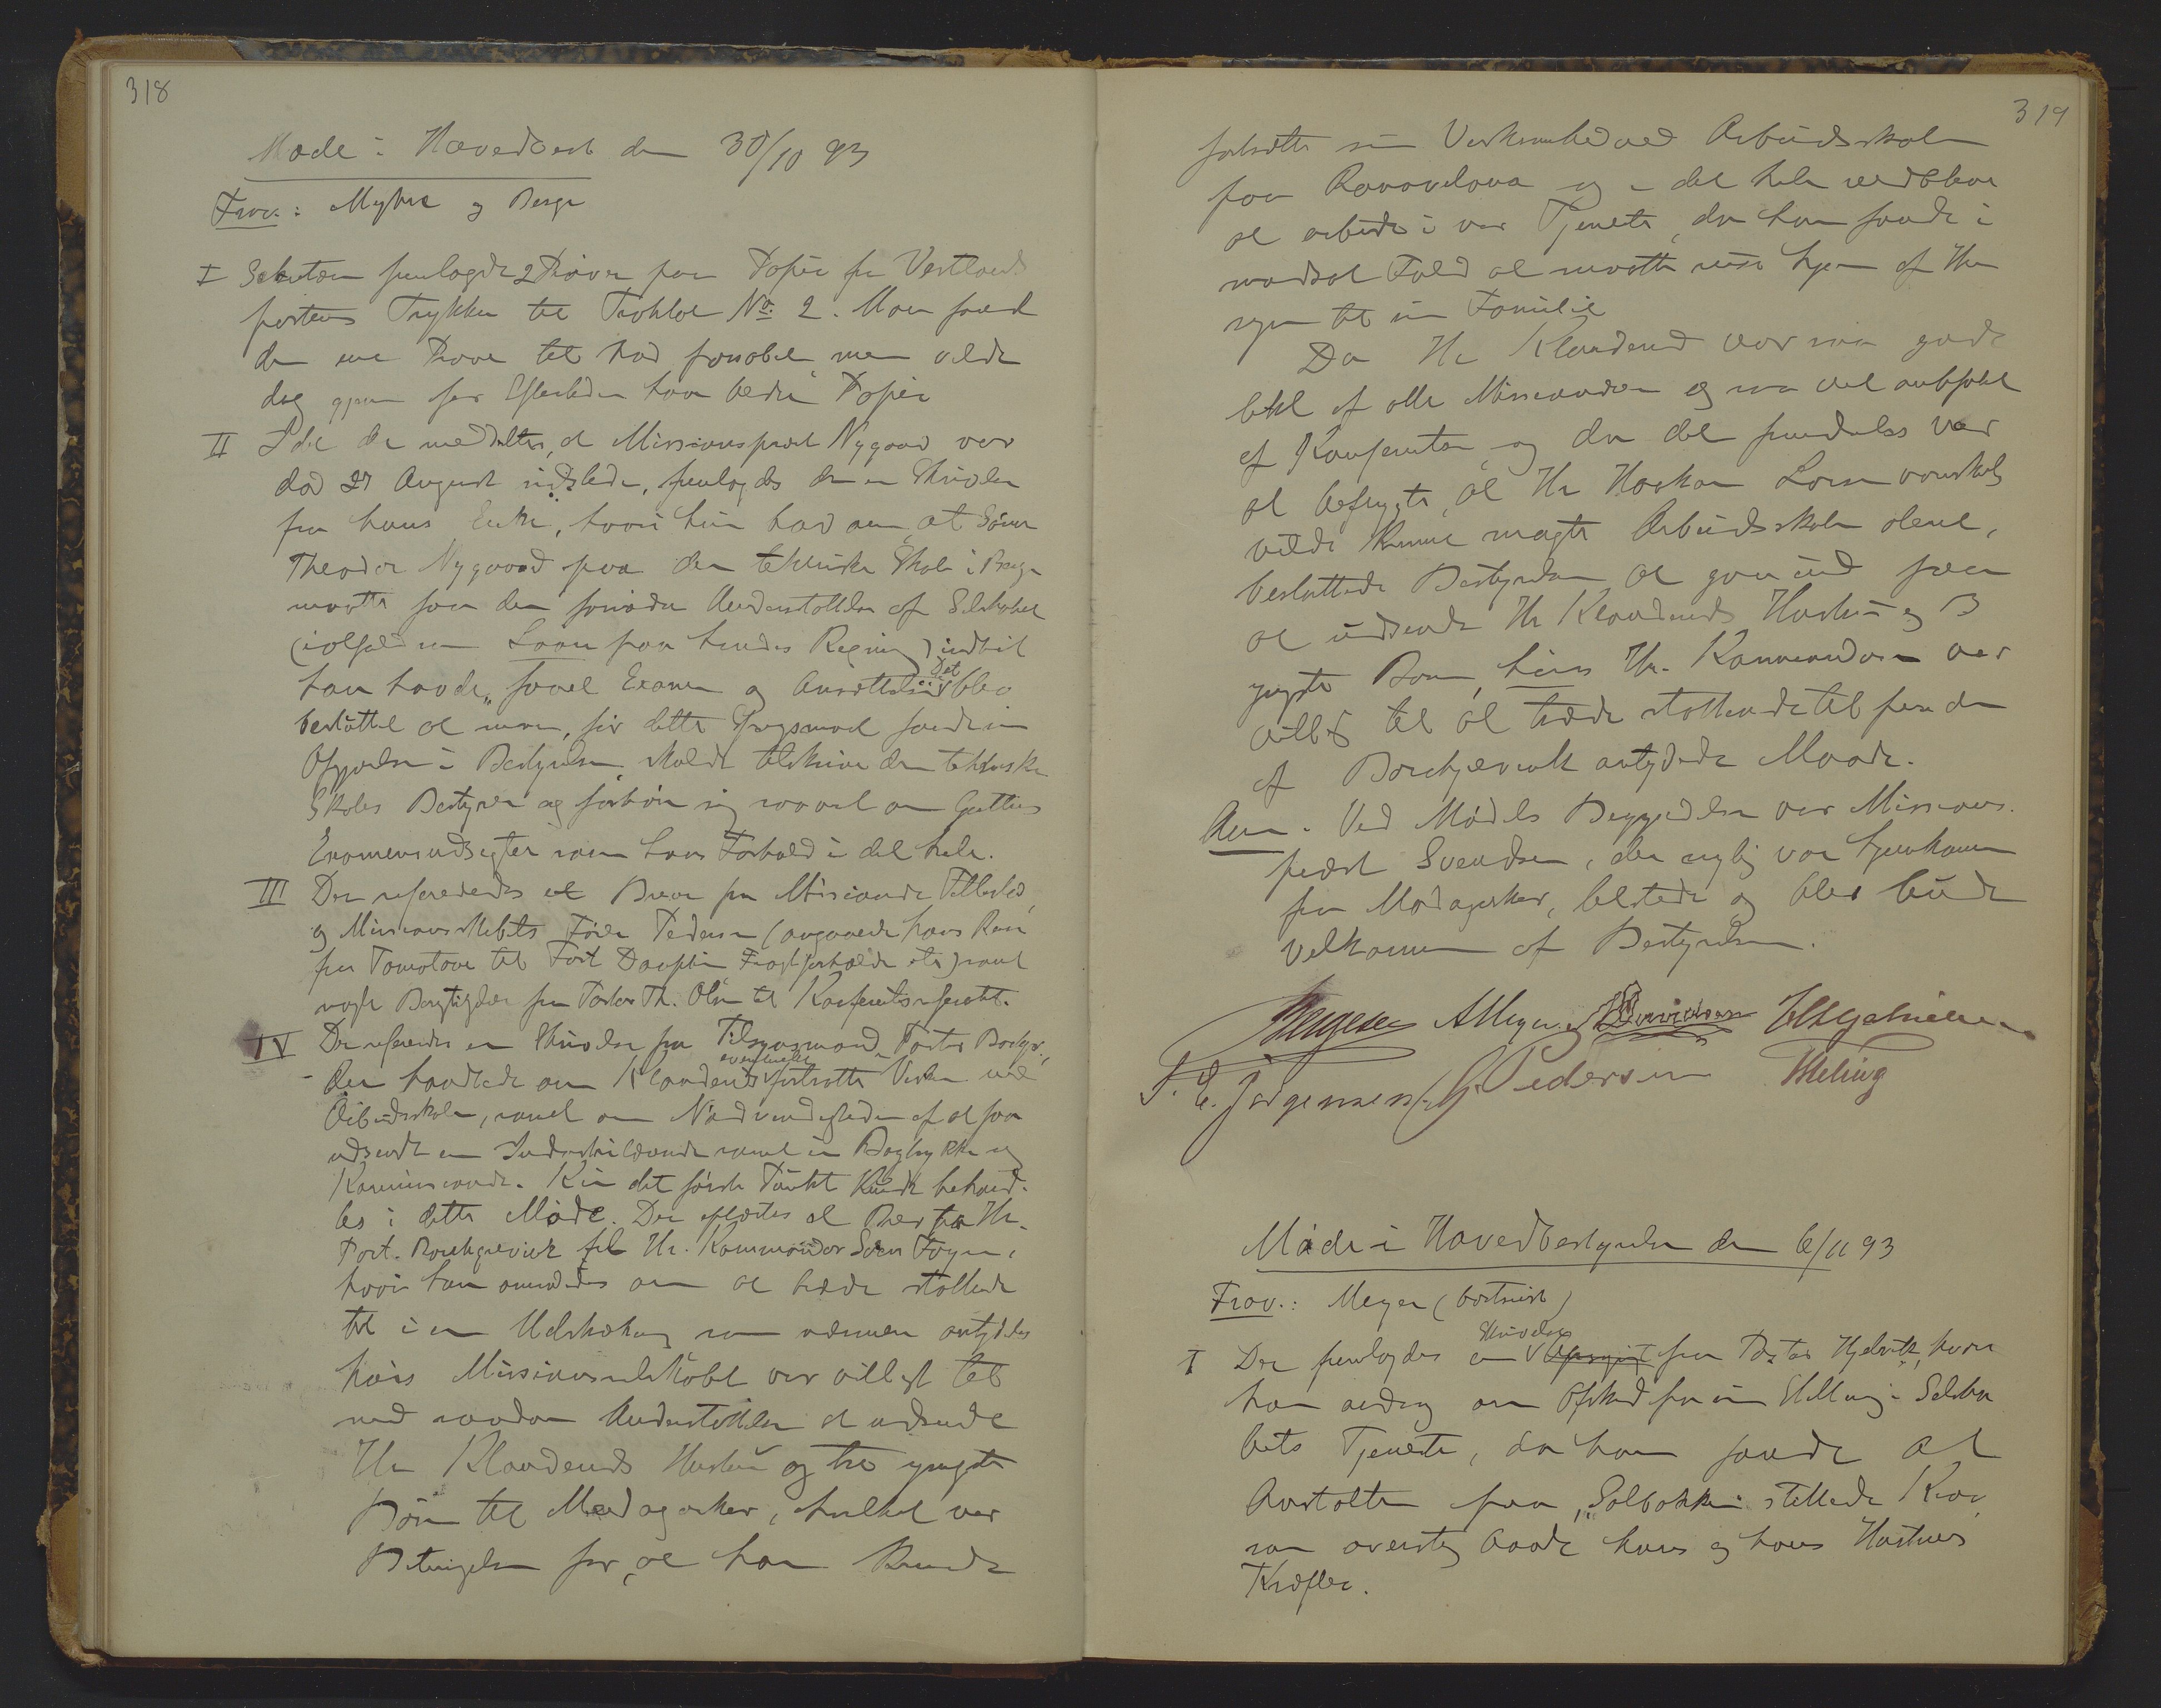 318
Møde i Hovedbest den 30/10 93
Frav.: Myhre og Berge
I Sekretæren fremlagde 2 Prøver paa Papir fra Vestlands
postens Trykkeri til Traktat No. 2. Man fandt
den ene Prøve til Nød passabel, men vilde
dog gjerne for Eftertiden have bedre Papir
II Idet der meddeltes, at Missionsprest Nygaard var
død 27 August sidstleden, fremlagdes der en Skrivelse
fra hans Enke, hvori hun bad om, at Sønnen
Theodor Nygaard paa den tekniske Skole i Bergen
maatte faa den fornødne Understøttelse af Selskabet
(ialfald som Laan paa hendes Regning) indtil
han havde faaet Examen og Ansættelse. Det blev
besluttet at man, før dette Spørgsmaal fandt sin
Afgjørelse i Bestyrelsen, skulde tilskrive den tekniske
Skoles Bestyrer og forhøre sig saavel om Guttens
Examensudsigter som hans Forhold i det hele.
III Der refereredes et Brev fra Missionær
og Missionsskibets Fører Pedersen (angaaende hans Reise
fra Tamatave til Fort Dauphin, Fragtforholde etc) samt
nogle Berigtigelser fra Pastor Th. Olsen til Konferentsreferatet.
IV Der refereredes en Skrivelse fra Tilsynsmand Pastor Borchgr.,
der handlede om Klaveruds eventuelle fortsatte Virken ved
Arbeidsskolen, samt om Nødvendigheden af at faa
udsendt en Industrikyndig samt en Bogtrykker og
. Kun det første Punkt kunde behand-
les i dette Møde. Der oplæstes et Brev fra Hr.
Past. Borchgrevink til Hr. Kommandør Sven Foyn,
hvori han anmodedes om at træde støttende
til i en Udstrækning som nærmere antydedes
hvis Missionsselskabet var villigt til
med saadan Understøttelse at udsende
Hr Klaveruds Hustru og tre yngste
Børn til Madagaskar, hvilket var
Betingelsen for, at han kunde
319
fortsætte sin Virksomhed ved Arbeidsskolen
paa Ranovelona og i det hele vedblive
at arbeide i vor Tjeneste, da han fandt i
modsat Fald at maatte reise hjem af Hen
syn til sin Familie
Da Hr Klaverud var saa godt
likt af alle Missionærer og saa vel anbefalet
af Konferentsen og da det fremdeles var
at befrygte, at Hr Haakon Larsen vanskelig
vilde kunne magte Arbeidsskolen alene,
besluttede Bestyrelsen at gaa ind paa
at udsende Hr Klaveruds Hustru og 3
yngste Børn, hvis Hr. Kommandøren var
villig til at træde støttende til paa den
af Borchgrevink antydede Maade.
Anm. Ved Mødets Begyndelse var Missions-
prest Svendsen, der nylig var hjemkommen
fra Madagaskar, tilstede og blev budt
velkommen af Bestyrelsen.
AMeyer Davidsen
S. E. Jørgensen G Pedersen Meling
Møde i Hovedbestyrelsen den 6/11 93
Frav.: Meyer (bortreist)
I Der fremlagdes en Skrivelse fra Pastor Hjelvik, hvori
han androg om Afsked fra sin Stilling i Selska
bets Tjeneste, da han fandt at
Anstalten paa „Solbakken“ stillede Krav,
som oversteg baade hans og hans Hustrues
Kræfter.